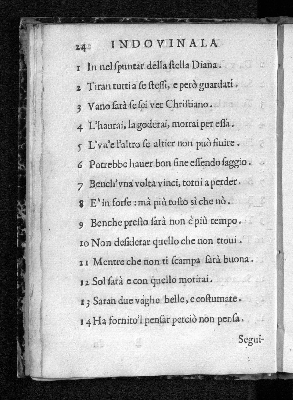 24 INDOVINALA
1 In nel spuntar della stella Diana.
2 Tiran tutti a se stessi, e però guardati.
3 Vano sarà se sei ver Christiano.
4 L'haurai, la goderai, morrai per essa.
5 L'vn'e l'altro se altier non può finire.
6 Potrebbe hauer bon fine essendo saggio.
7 Bench'vna volta vinci, torni a perder.
8 E' in forse: mà più tosto sì che nò.
9 Benche presto sarà non è più tempo.
10 Non desiderar quello che non troui.
11 Mentre che non ti scampa sarà buona.
12 Sol sarà e con quello morirai.
13 Saran due vaghe belle, e costumate.
14 Ha fornito'l pensar perciò non pensa.
Segui-